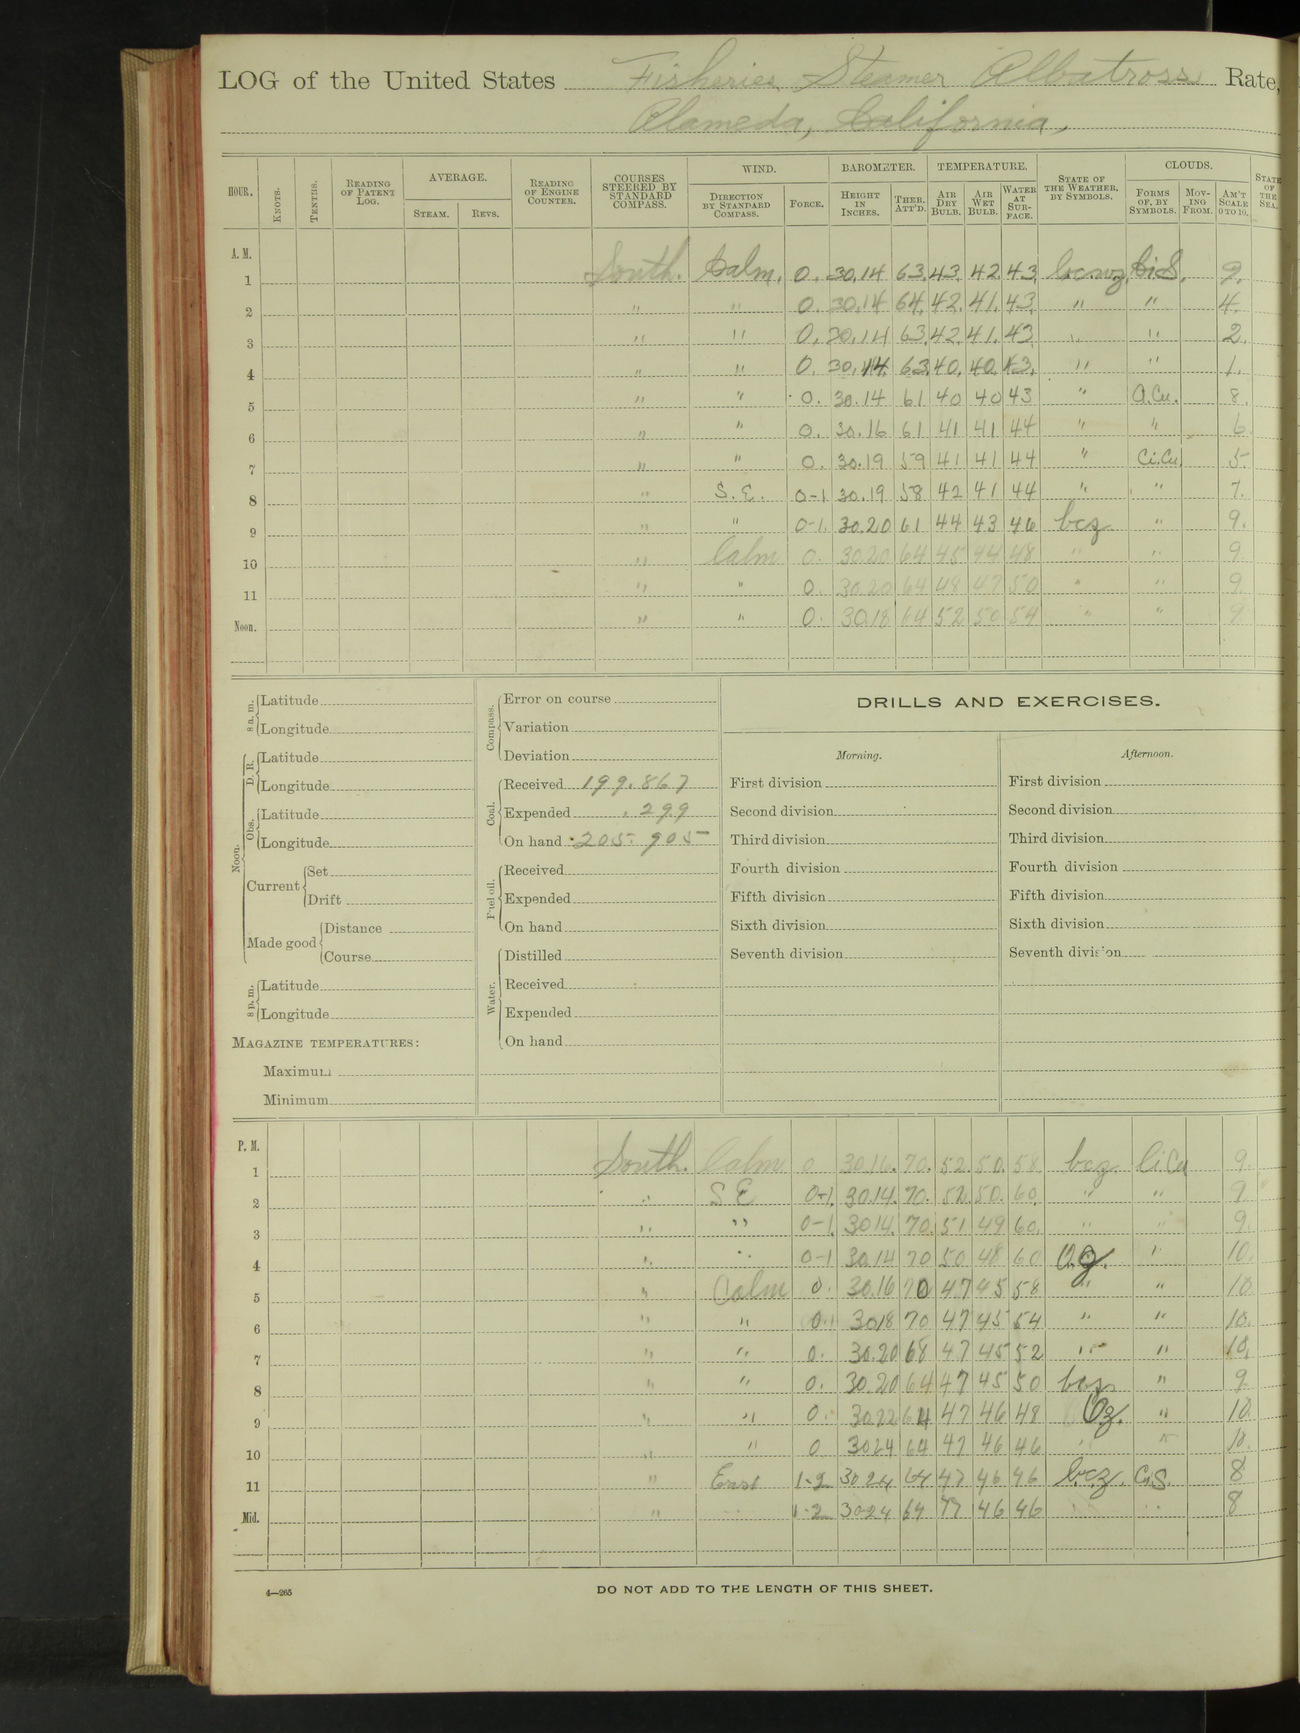 LOG of the United States Fisheries Steamer Albatross Rate,
Alameda, California,
HOUR. KNOTS. TENTHS. READING OF PATENT LOG. AVERAGE. STEAM. REVS. READING OF ENGINE COUNTER. COURSES STEERED BY STANDARD COMPASS. WIND. DIRECTION BY STANDARD COMPASS. FORCE. BAROMETER. HEIGHT IN INCHES. THER. ATT'D. TEMPERATURE. AIR DRY BULB. AIR WET BULB. WATER AT SURFACE. STATE OF THE WEATHER, BY SYMBOLS. CLOUDS. FORMS OF, BY SYMBOLS. MOVING FROM. AM'T SCALE 0 TO 10. STATE OF THE SEA.
A. M.
1 South. Calm. 0. 30.14 63. 43. 42. 43. bcwz. Ci.S. 9.
2 " " 0. 30.14 64. 42. 41. 43. " " 4.
3 " " 0. 30.14 63. 42. 41. 43. " " 2.
4 " " 0. 30.14. 63. 40. 40. 43. " " 1.
5 " " 0. 30.14 61 40 40 43 " A.Cu. 8.
6 " " 0. 30.16 61 41 41 44 " " 6.
7 " " 0. 30.19 59 41 41 44 " Ci.Cu. 5.
8 " S.E. 0-1 30.19 58 42 41 44 " " 7.
9 " " 0-1. 30.20 61 44 43 46 bcz " 9.
10 " Calm 0. 30.20 64 45 44 48 " " 9.
11 " " 0. 30.20 64 48 47 50 " " 9.
Noon. " " 0. 30.18 64 52 50 54 " " 9
8 a.m. Latitude
Longitude
Noon. D. R. Latitude
Longitude
Obs. Latitude
Longitude
Current Set
Drift
Made good Distance
Course
8 p.m. Latitude
Longitude
MAGAZINE TEMPERATURES:
Maximum
Minimum
Compass. Error on course
Variation
Deviation
Coal. Received 199.867
Expended .299
On hand 205.905
Fuel oil. Received
Expended
On hand
Water. Distilled
Received
Expended
On hand
DRILLS AND EXERCISES.
Morning. Afternoon.
First division First division
Second division Second division
Third division Third division
Fourth division Fourth division
Fifth division Fifth division
Sixth division Sixth division
Seventh division Seventh division
P. M.
1 South. Calm 0 30.16. 70. 52. 50. 58 bcz Ci.Cu 9.
2 " S E 0-1. 30.14. 70. 52. 50. 60. " " 9.
3 " " 0-1. 30 14. 70. 51 49 60. " " 9.
4 " " 0-1 30.14 70 50 48 60 O.z. " 10.
5 " Calm 0. 30.16 70 47 45 58 " " 10.
6 " " 0. 30 18 70 47 45 54 " " 10.
7 " " 0. 30.20 68 47 45 52 " " 10.
8 " " 0. 30.20 64 47 45 50 bcz " 9.
9 " " 0. 30 22 64 47 46 48 Oz. " 10.
10 " " 0 30 24 64 47 46 46 " " 10.
11 " East 1-2 30 24 64 47 46 46 bcz. C.S. 8
Mid. " " 1-2 30 24 64 47 46 46 " " 8
4—265
DO NOT ADD TO THE LENGTH OF THIS SHEET.